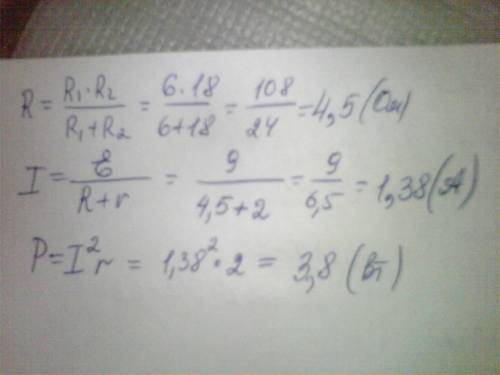 R = R₁·R₂ / R₁+R₂ = 6·18 / 6+18 = 108 / 24 = 4,5 (Ом)
I = ℰ / R+r = 9 / 4,5+2 = 9 / 6,5 = 1,38 (А)
P = I²r = 1,38²·2 = 3,8 (Вт)